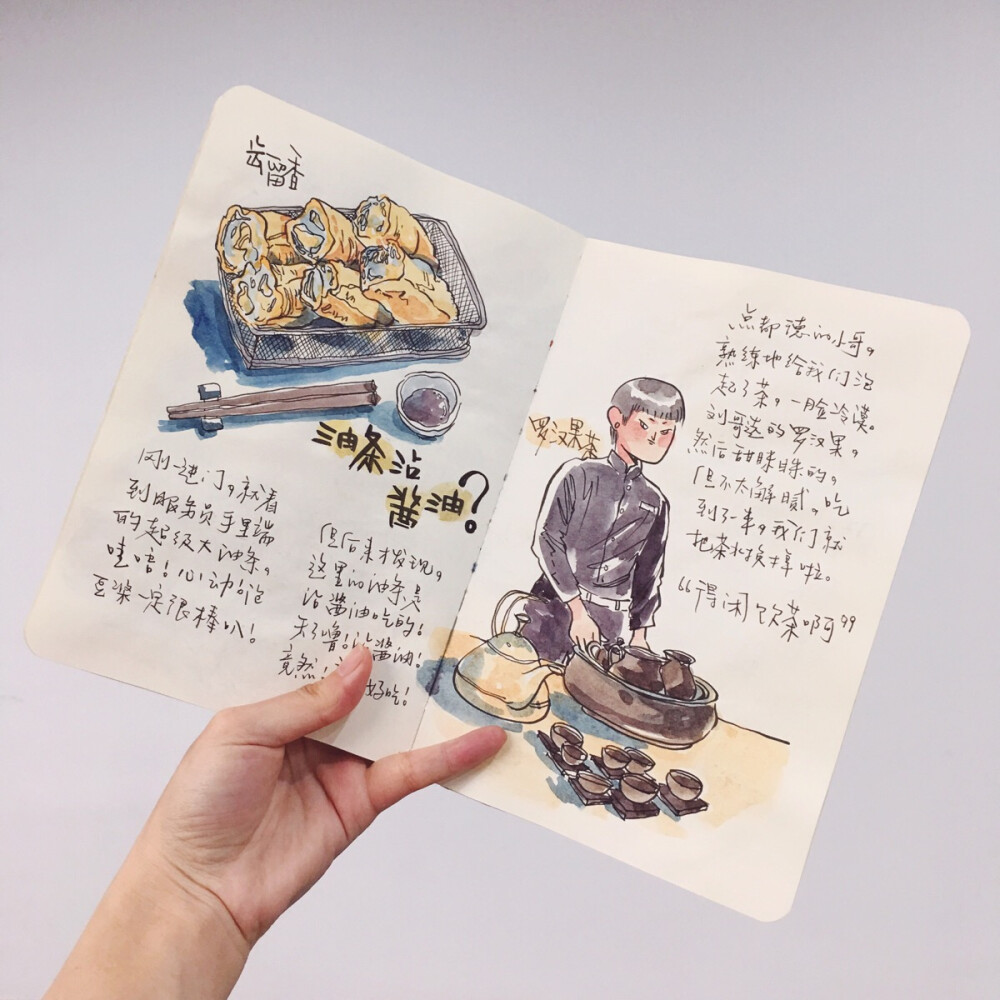 齿留香
油条沾
酱油?
刚一进门,就看
到服务员手里端
的超级大油条。
哇唔!心动!泡
豆浆一定很棒叭!
但后来才发现,
这里的油条是
沾酱油吃的!
天了噜!沾酱油!
竟然!
好吃!
罗汉果茶
点都德的小哥,
熟练地给我们泡
起了茶,一脸冷漠。
刘哥选的罗汉果,
然后甜眯眯的。
但不太解腻,吃
到了一半,我们就
把茶水换掉啦。
“得闲饮茶啊”